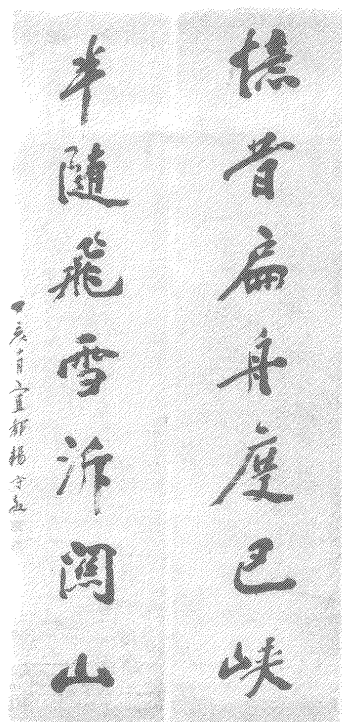 憶昔扁舟度巴峽
半隨飛雪泝關山
丁亥十月宜都楊守敬